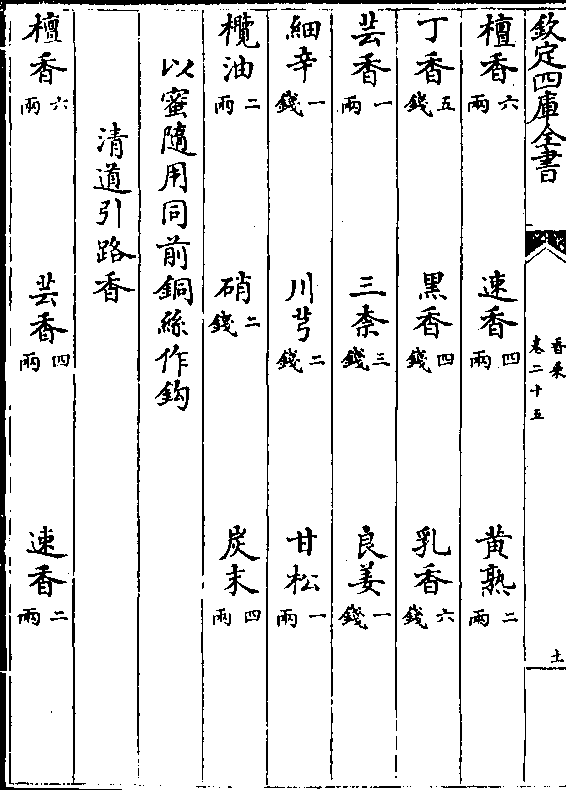 欽定四庫全書
香乘
卷二十五
土
檀香六兩 速香四兩 黃熟二兩
丁香五錢 黑香四錢 乳香六錢
芸香一兩 三柰三錢 良姜一錢
細辛一錢 川芎二錢 甘松一兩
欖油二兩 硝二錢 炭末四兩
以蜜隨用同前銅絲作鈎
清道引路香
檀香六兩 芸香四兩 速香二兩